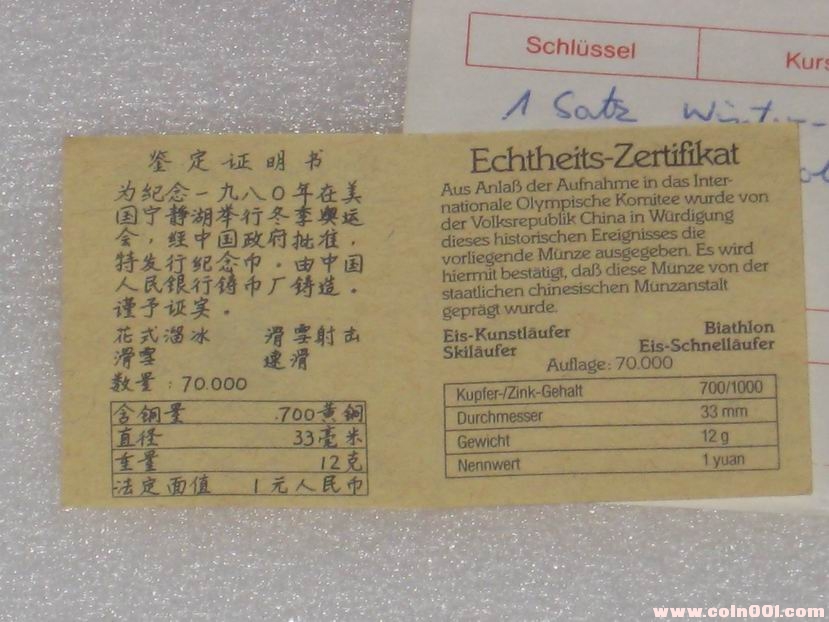 Schlüssel
Kurs
1 Satz Winter-
鉴定证明书
为纪念一九八〇年在美
国宁静湖举行冬季奥运
会，经中国政府批准，
特发行纪念币。由中国
人民银行铸币厂铸造。
谨予证实。
花式溜冰 滑雪射击
滑雪 速滑
数量：70.000
含铜量 .700黄铜
直径 33毫米
重量 12克
法定面值 1元人民币
Echtheits-Zertifikat
Aus Anlaß der Aufnahme in das Inter-
nationale Olympische Komitee wurde von
der Volksrepublik China in Würdigung
dieses historischen Ereignisses die
vorliegende Münze ausgegeben. Es wird
hiermit bestätigt, daß diese Münze von der
staatlichen chinesischen Münzanstalt
geprägt wurde.
Eis-Kunstläufer Biathlon
Skiläufer Eis-Schnelläufer
Auflage: 70.000
Kupfer-/Zink-Gehalt 700/1000
Durchmesser 33 mm
Gewicht 12 g
Nennwert 1 yuan
www.coin001.com